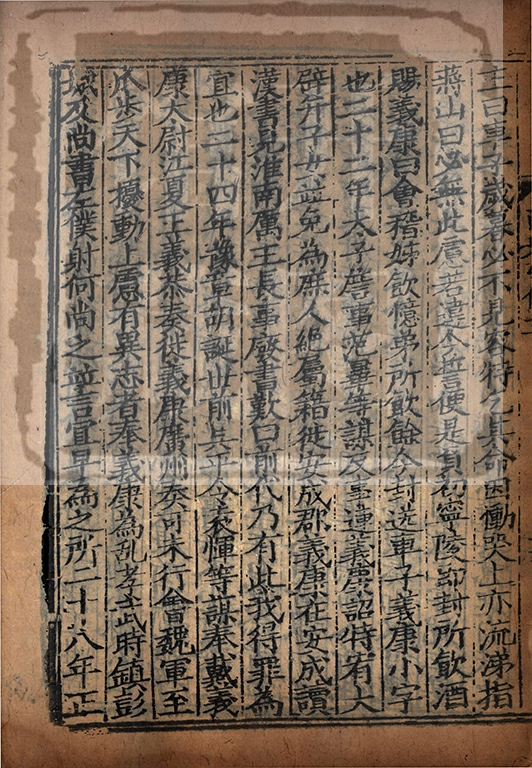 主曰車子歲暮必不見容特乞其命因慟哭上亦流涕指
蔣山曰必無此慮若違今誓便是負初寧陵即封所飲酒
賜義康曰會稽姊飲憶弟所飲餘今封送車子義康小字
也二十二年太子詹事范曄等謀反事連義康詔特宥大
辟并子女並免為庶人絕屬籍徙安成郡義康在安成讀
漢書見淮南厲王長事廢書歎曰前代乃有此我得罪為
宜也二十四年豫章胡誕世前吳平令袁惲等謀奉戴義
康太尉江夏王義恭奏徙義康廣州奏可未行會魏軍至
瓜步天下擾動上慮有異志者奉義康為亂孝武時鎮彭
城及尚書左僕射何尚之並言宜早為之所二十八年正